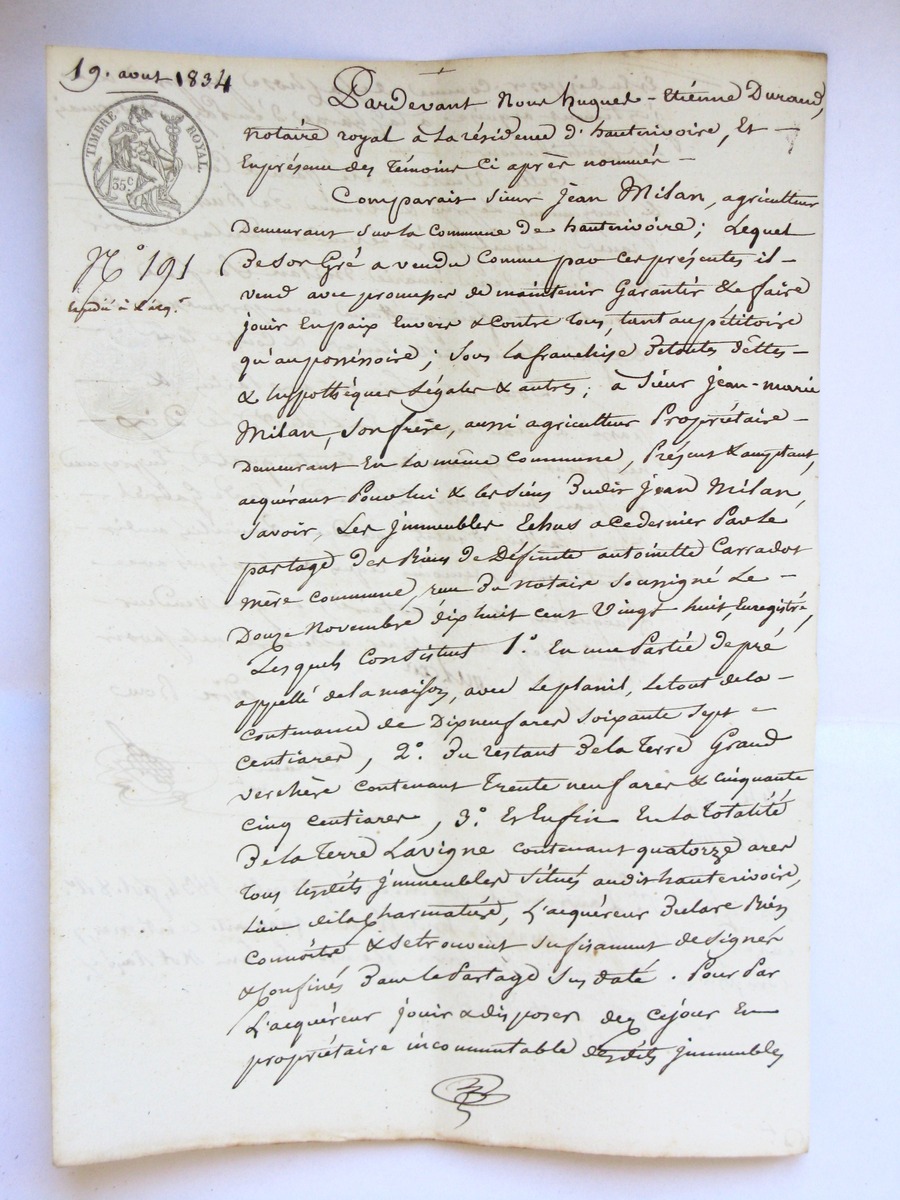 19. aout 1834
TIMBRE ROYAL
35c
N.° 191
expédié à l'acq.r
Pardevant Nous hugues-Etiènne Durand,
notaire royal à la résidence d'hauterivoire, Et —
En présence des témoins Ci après nommés —
Comparait Sieur jean Milan, agriculteur
Demeurant sur la Commune de hauterivoire; Lequel
De son Gré a vendu Comme par ces présentes il —
vend avec promesse de maintenir Garantir & faire
jouir En paix Envers & Contre tous, tant au pétitoire
qu'au possessoire; Sous la franchise De toutes dettes —
& hypothèques Légales & autres; à Sieur jean-marie
Milan, son frère, aussi agriculteur Propriétaire —
Demeurant En la même Commune, Présent & acceptant,
acquérant Pour lui & les siens Dudit jean Milan,
Savoir, Les jmmeubles Echus a ce dernier Par le
partage Des Biens de Défunte antoinette Carradot
mère commune, reçu Du Notaire Soussigné Le —
Douze Novembre dix huit cent Vingt huit, Enregistré,
Lesquels Consistent 1.° En une Partie de pré
appellé de la maison, avec Le planil, Le tout de la —
Contenance de Dix neuf ares soixante Sept —
Centiares, 2.° Du restant De la Terre Grand
verchère contenant trente neuf ares & cinquante
cinq centiares, 3.° Et Enfin En la totalité
De la terre Lavigne contenant quatorze ares
tous lesdits jmmeubles Situés audit hauterivoire,
Lieu de la Charmatière, L'acquéreur Declare Bien
Connoitre & se trouvent sufisament designés
& Confinés Dans le Partage Sus daté. Pour Par
L'acquéreur jouir & disposer dez Cejour En
propriétaire incommutable desdits jmmeubles